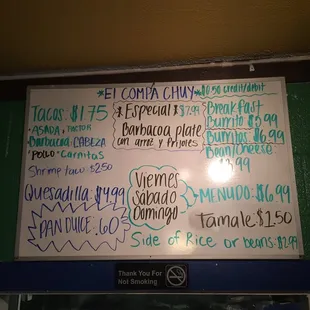 *El COMPA CHUY* $0.50 credit/debit
Tacos: $1.75
ASADA, PASTOR
Barbacoa, CABEZA
POLLO, Carnitas
Shrimp Taco: $2.50
Quesadilla: $4.99
PAN DULCE .60
*Especial* $7.99
Barbacoa plate
con arroz y frijoles
Viernes
Sabado
Domingo
Side of Rice or beans: $2.99
Breakfast
Burrito $3.99
Burritos $6.99
Bean/Cheese
$3.99
MENUDO: $6.99
Tamale $1.50
Thank You For
Not Smoking